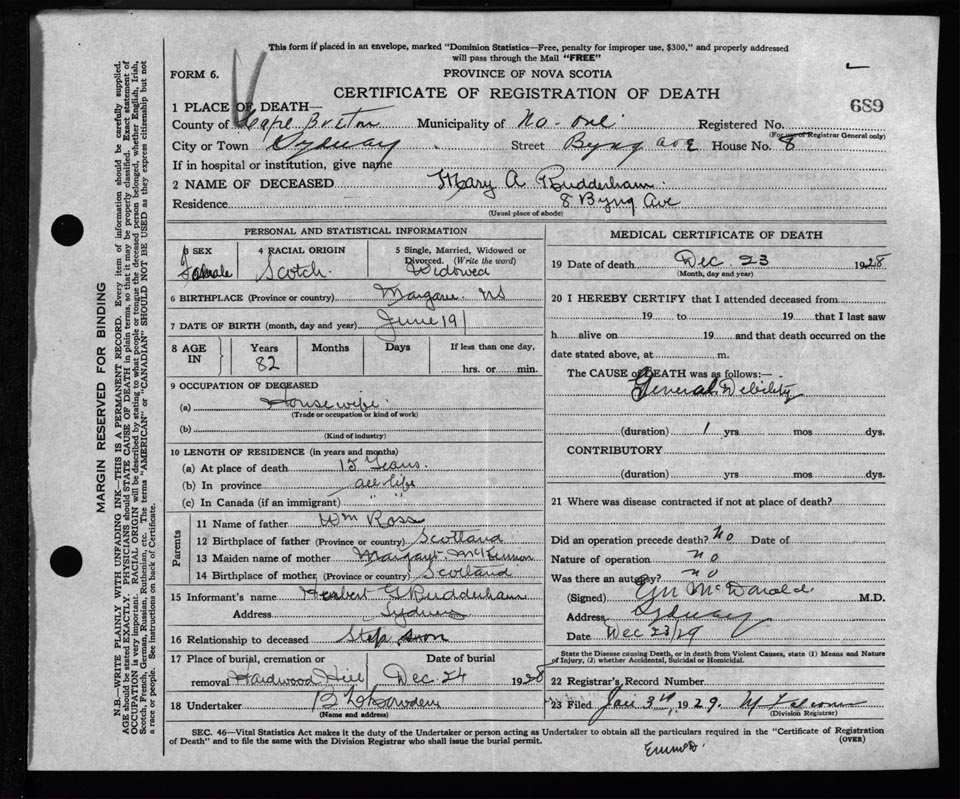 This form if placed in an envelope, marked "Dominion Statistics—Free, penalty for improper use, $300," and properly addressed
will pass through the Mail "FREE"
FORM 6.
PROVINCE OF NOVA SCOTIA
CERTIFICATE OF REGISTRATION OF DEATH
689
1 PLACE OF DEATH—
County of Cape Breton Municipality of No. one Registered No.
(For use of Registrar General only)
City or Town Sydney Street Byng Ave House No. 8
If in hospital or institution, give name
2 NAME OF DECEASED Mary A Rudderham
Residence 8 Byng Ave
(Usual place of abode)
PERSONAL AND STATISTICAL INFORMATION
3 SEX Female
4 RACIAL ORIGIN Scotch
5 Single, Married, Widowed or Divorced. (Write the word) Widowed
6 BIRTHPLACE (Province or country) Margaree NS
7 DATE OF BIRTH (month, day and year) June 19
8 AGE IN Years 82 Months Days If less than one day, hrs. or min.
9 OCCUPATION OF DECEASED
(a) Housewife
(Trade or occupation or kind of work)
(b)
(Kind of industry)
10 LENGTH OF RESIDENCE (in years and months)
(a) At place of death 15 Years.
(b) In province all life
(c) In Canada (if an immigrant) " "
Parents
11 Name of father Wm Ross
12 Birthplace of father (Province or country) Scotland
13 Maiden name of mother Margaret McKinnon
14 Birthplace of mother (Province or country) Scotland
15 Informant's name Herbert Rudderham
Address Sydney
16 Relationship to deceased Step son
17 Place of burial, cremation or removal Hardwood Hill
Date of burial Dec. 24 1928
18 Undertaker
(Name and address)
MEDICAL CERTIFICATE OF DEATH
19 Date of death Dec. 23 1928
(Month, day and year)
20 I HEREBY CERTIFY that I attended deceased from
19 to 19 that I last saw
h alive on 19 and that death occurred on the
date stated above, at m.
The CAUSE of DEATH was as follows:—
General Debility
(duration) 1 yrs mos dys.
CONTRIBUTORY
(duration) yrs mos dys.
21 Where was disease contracted if not at place of death?
Did an operation precede death? No Date of
Nature of operation no
Was there an autopsy? no
(Signed) McDonald M.D.
Address Sydney
Date Dec 23/29
State the Disease causing Death, or in death from Violent Causes, state (1) Means and Nature
of Injury, (2) whether Accidental, Suicidal or Homicidal.
22 Registrar's Record Number
23 Filed Jan 3rd, 1929.
(Division Registrar)
SEC. 46—Vital Statistics Act makes it the duty of the Undertaker or person acting as Undertaker to obtain all the particulars required in the "Certificate of Registration
of Death" and to file the same with the Division Registrar who shall issue the burial permit.
(OVER)
MARGIN RESERVED FOR BINDING
N.B.—WRITE PLAINLY WITH UNFADING INK—THIS IS A PERMANENT RECORD. Every item of information should be carefully supplied.
AGE should be stated EXACTLY. PHYSICIANS should STATE CAUSE OF DEATH in plain terms, so that it may be properly classified. Exact statement of
OCCUPATION is very important. RACIAL ORIGIN will be described by stating to what people or tongue the deceased person belonged, whether English, Irish,
Scotch, French, German, Russian, Ruthenian, etc. The terms "AMERICAN" or "CANADIAN" SHOULD NOT BE USED as they express citizenship but not
a race or people. See instructions on back of Certificate.